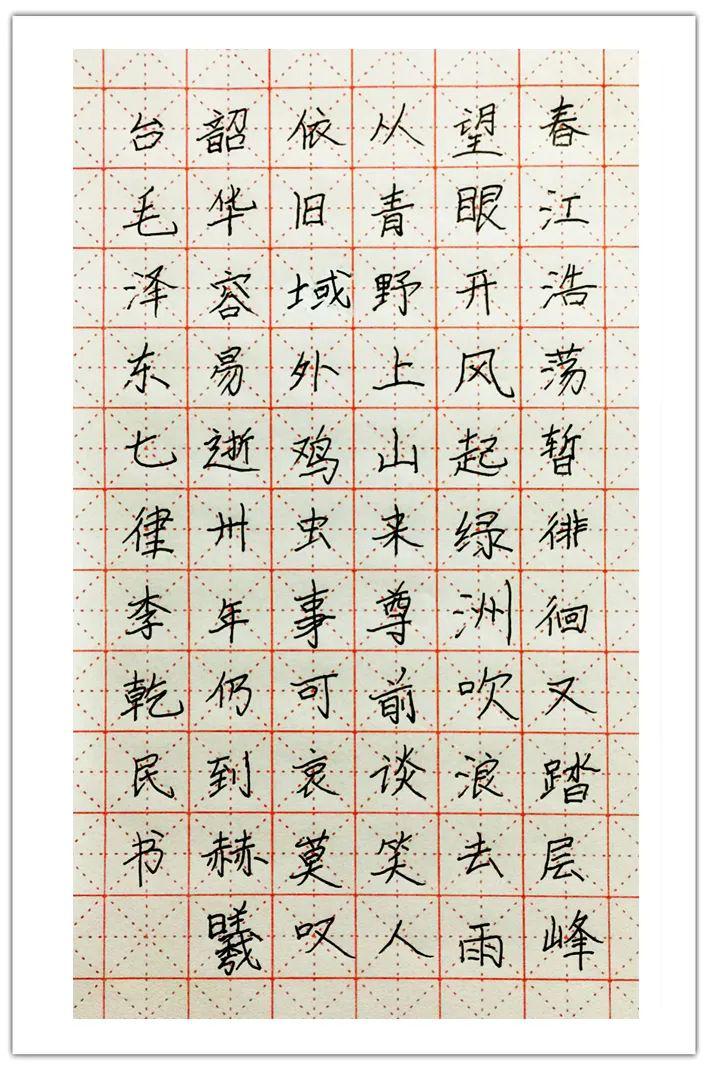 春江浩荡暂徘徊又踏层峰
望眼开风起绿洲吹浪去雨
从青野上山来尊前谈笑人
依旧域外鸡虫事可哀莫叹
韶华容易逝卅年仍到赫曦
台毛泽东七律李乾民书